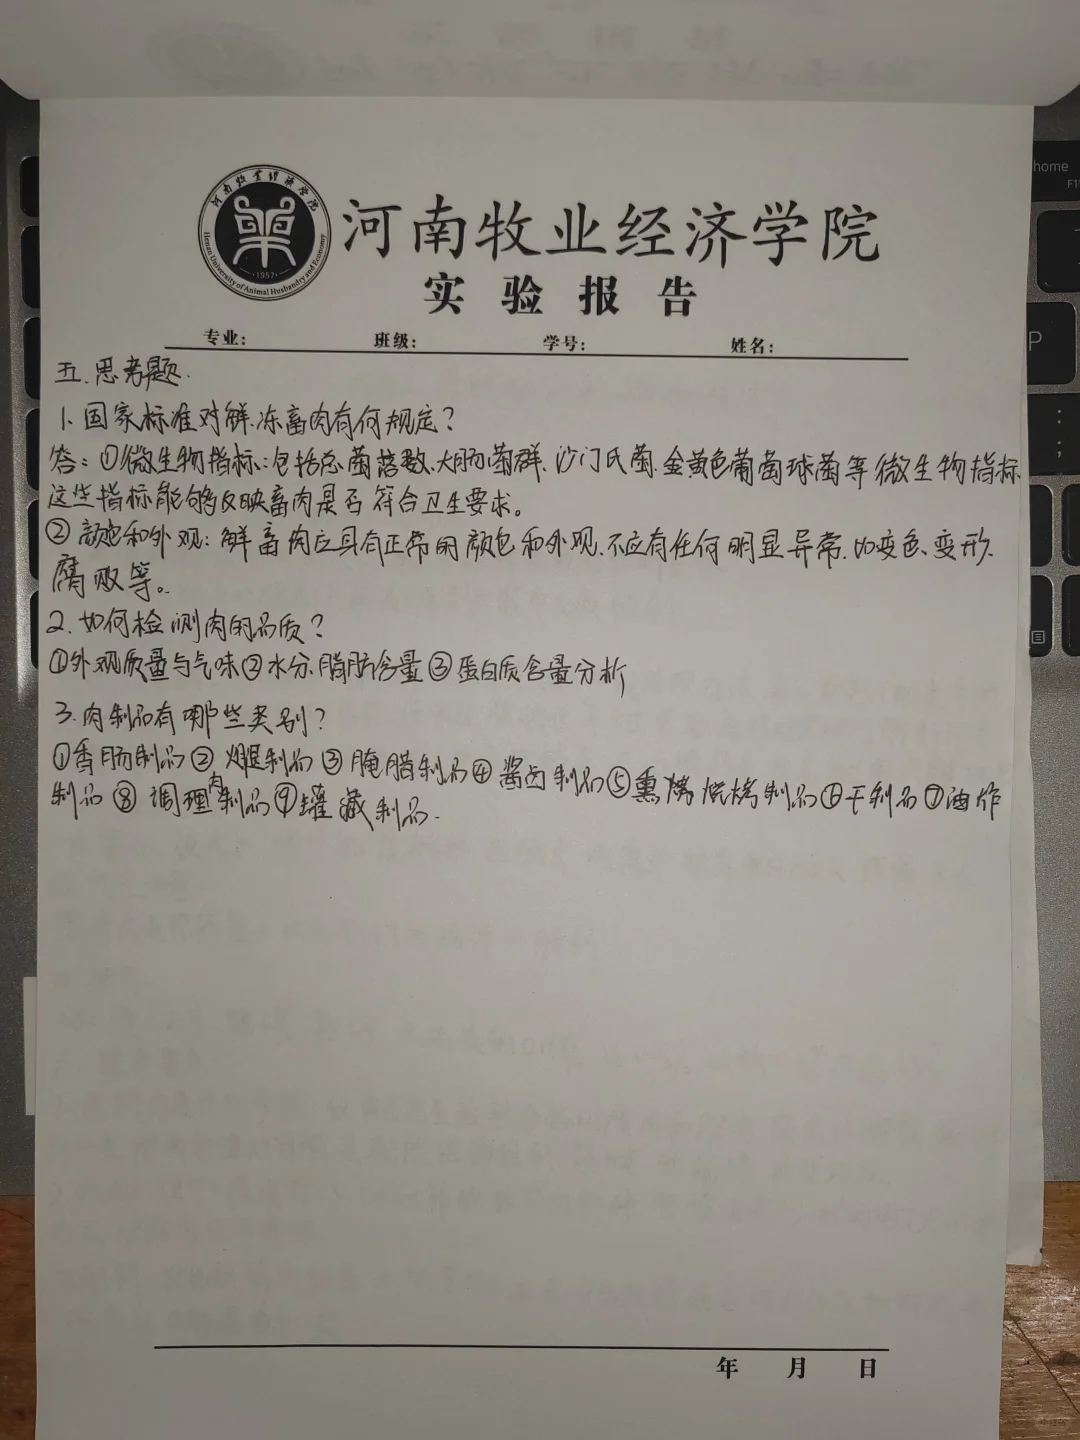 河南牧业经济学院
Henan University of Animal Husbandry and Economy
·1957·
河南牧业经济学院
实验报告
专业: 班级: 学号: 姓名:
五.思考题.
1、国家标准对鲜、冻畜肉有何规定?
答:①微生物指标:包括总菌落数、大肠菌群、沙门氏菌、金黄色葡萄球菌等微生物指标
这些指标能够反映畜肉是否符合卫生要求。
②颜色和外观:鲜畜肉应具有正常的颜色和外观、不应有任何明显异常、如变色、变形、
腐败等。
2.如何检测肉的品质?
①外观质量与气味②水分、脂肪含量③蛋白质含量分析
3.肉制品有哪些类别?
①香肠制品②火腿制品③腌腊制品④酱卤制品⑤熏烤烧烤制品⑥干制品⑦油炸
制品⑧调理肉制品⑨罐藏制品.
年 月 日
home
P